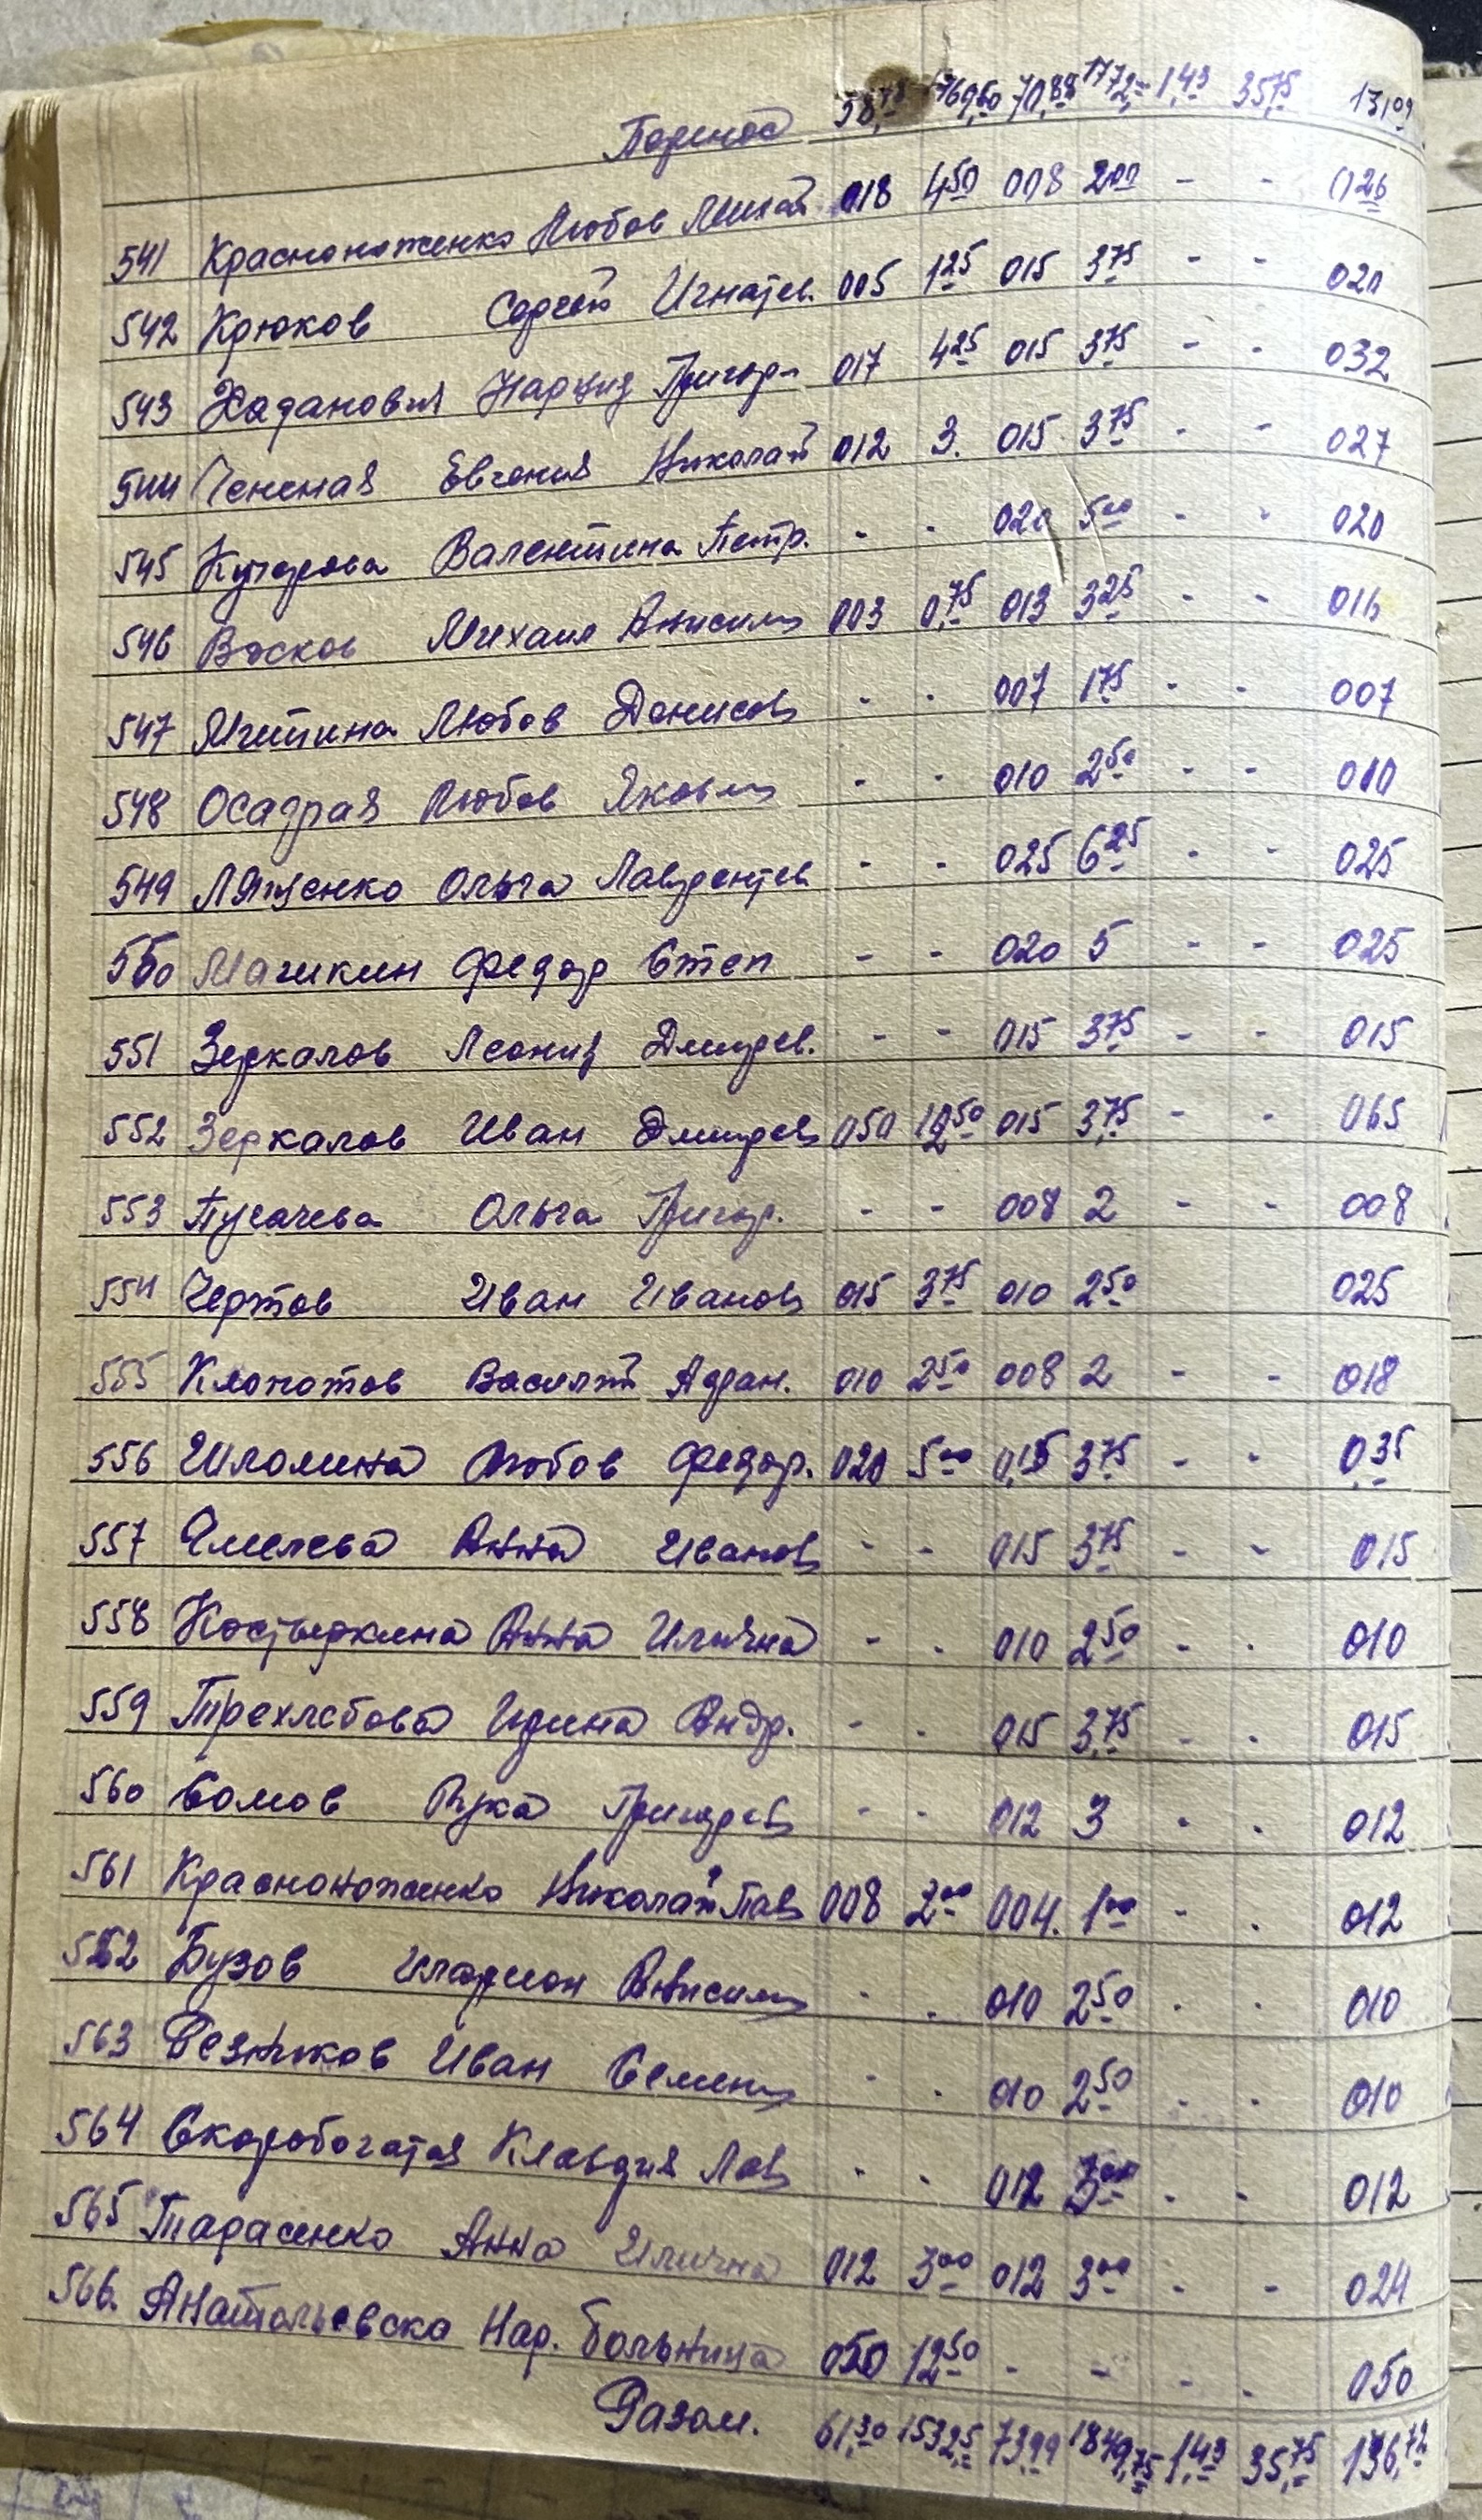 Перенос 58,78 1469,50 70,88 1772,- 1,43 35,75 131,09
541 Красноноженко Любов Михай 018 4 50 008 2 00 - - 026
542 Крюков Сергей Игнатьев. 005 1 25 015 3 75 - - 020
543 Хаданович Нарциз Григор. 017 4 25 015 3 75 - - 032
544 Евгения Николай 012 3. 015 3 75 - - 027
545 Кучерова Валентина Петр. - - 020 5 00 - - 020
546 Васков Михаил Анисим 003 0,75 013 3 25 - - 016
547 Митина Любов Денисов - - 007 1 75 - - 007
548 Осадчая Любов Яковл - - 010 2 50 - - 010
549 Ляшенко Ольга Лаврентев - - 025 6 25 - - 025
550 Магикин Федор Степ - - 020 5 - - 025
551 Зеркалов Леонид Дмитрев. - - 015 3 75 - - 015
552 Зеркалов Иван Дмитрев 050 12 50 015 3,75 - - 065
553 Пугачева Ольга Григор. - - 008 2 - - 008
554 Чертов Иван Иванов 015 3 75 010 2 50 025
555 Клокотов Василий Адран. 010 2 50 008 2 - - 018
556 Шломина Любов Федор. 020 5 00 0,15 3 75 - - 0,35
557 Чмелева Анна Иванов - - 015 3 75 - - 015
558 Костыркина Анна Илична - - 010 2 50 - - 010
559 Трехлебова Ирина Андр. - - 015 3,75 - - 015
560 Сомов Лука Григорев - - 012 3 - - 012
561 Красноноженко Николай Пав 008 2 00 004. 1 00 - - 012
562 Бузов Иларион Анисим - - 010 2 50 - - 010
563 Резников Иван Семен - - 010 2 50 - - 010
564 Скоробогатая Клавдия Лав - - 012 3 00 - - 012
565 Тарасенко Анна Илична 012 3 00 012 3 00 - - 024
566 Анатольевска Нар. больница 050 12 50 - - - - 050
Разом. 61,30 1532,5 73,99 1849,75 1,43 35,75 136,72